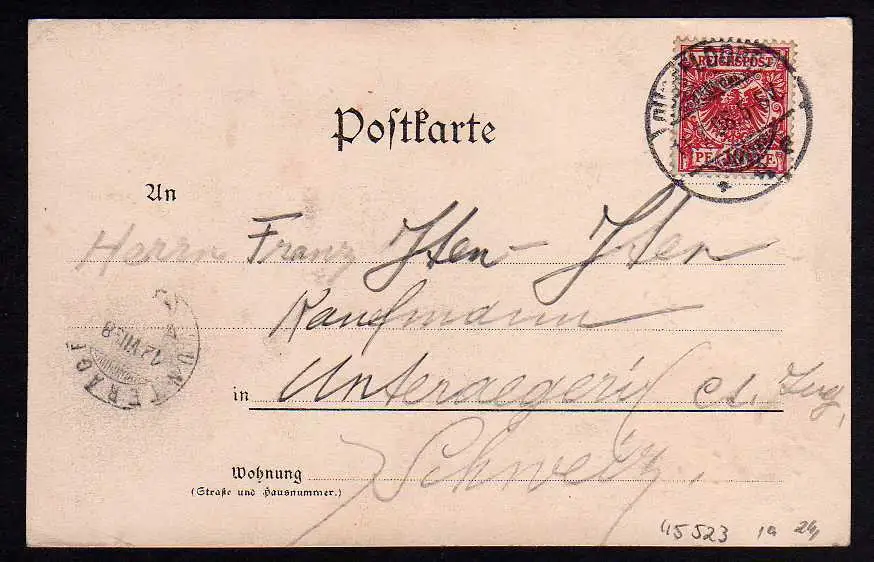 DÜSSELDORF
REICHSPOST
Postkarte
An
Herrn Franz Iten-Iten
Kaufmann
in Unteraegeri Ct. Zug,
UNTERÄGERI
12 VII 98
Schweiz,
Wohnung
(Straße und Hausnummer.)
45523 1a 24,